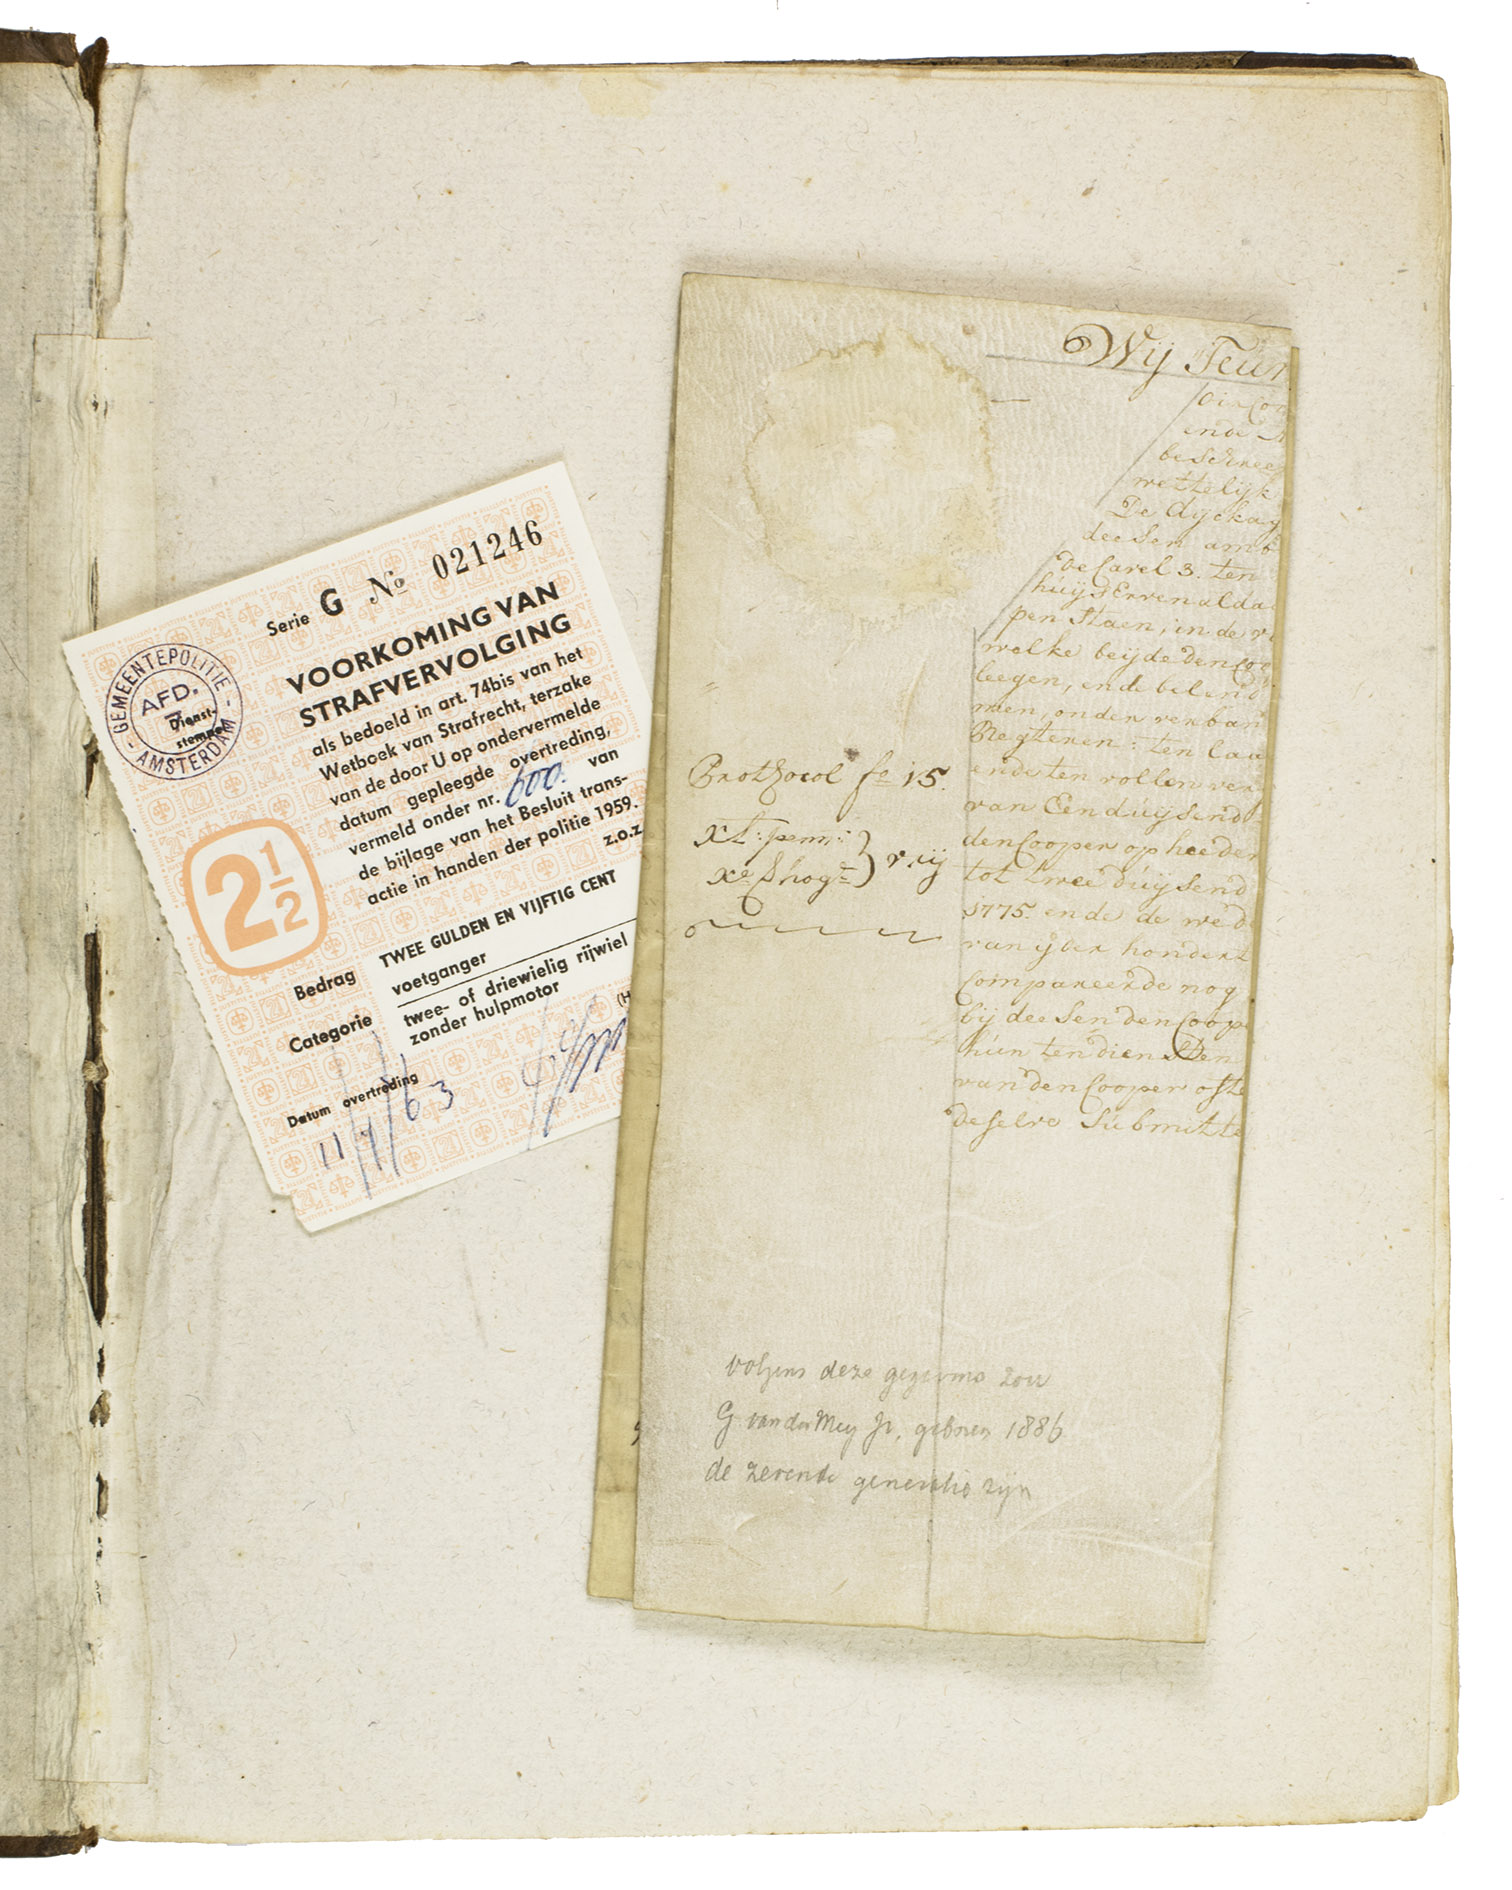 Serie G No 021246
VOORKOMING VAN
STRAFVERVOLGING
als bedoeld in art. 74bis van het
Wetboek van Strafrecht, terzake
van de door U op ondervermelde
datum gepleegde overtreding,
vermeld onder nr. 600. van
de bijlage van het Besluit trans-
actie in handen der politie 1959.
z.o.z.
GEMEENTEPOLITIE
AFD.
Dienst-
stempel
AMSTERDAM
2 1/2
Bedrag TWEE GULDEN EN VIJFTIG CENT
Categorie voetganger
twee- of driewielig rijwiel
zonder hulpmotor
(H
Datum overtreding
63
Wij Teun
ende
beschree
wettelijk
De dijckag
deesen amb
de Carel 3. ten
huijs Erven alda
pen staen, in de
welke beijde den Coo
leegen, ende belend
men, onder verban
Regteren: ten laa
ende ten vollen ver
van Een duijsend
den Cooper op heeden
tot twee duijsend
1775. ende de
van ijder hondert
Compareerde nog
bij deesen den Coop
hun ten diensten
van den Cooper ofte
deselve Submitte
Prothocol fo 15.
volgens deze gegevens zou
G van der Mey Jr. geboren 1886
de zevende generatie zijn